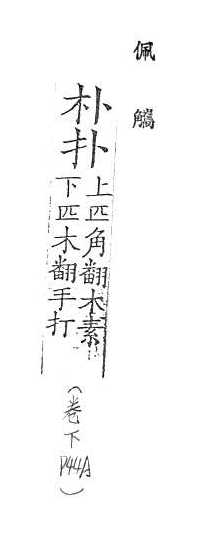 佩觿
朴扑
上匹角翻木素
下匹木翻手打
(卷下
P44A)